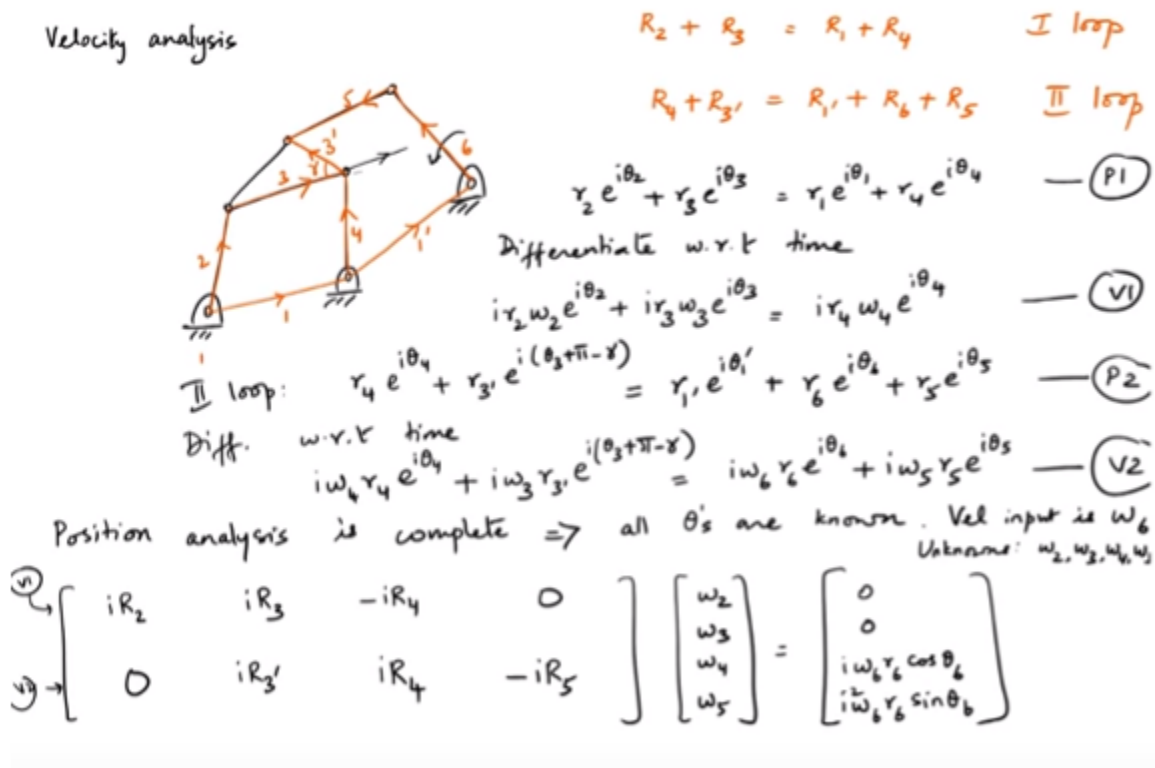 Velocity analysis
R₂ + R₃ = R₁ + R₄ I loop
R₄ + R₃' = R₁' + R₆ + R₅ II loop
5
3'
6
3
γ
2
4
1'
1
1
r₂e^{iθ₂} + r₃e^{iθ₃} = r₁e^{iθ₁} + r₄e^{iθ₄} — P1
Differentiate w.r.t time
ir₂ω₂e^{iθ₂} + ir₃ω₃e^{iθ₃} = ir₄ω₄e^{iθ₄} — V1
II loop: r₄e^{iθ₄} + r₃'e^{i(θ₃+π-γ)} = r₁'e^{iθ₁'} + r₆e^{iθ₆} + r₅e^{iθ₅} — P2
Diff. w.r.t time
iω₄r₄e^{iθ₄} + iω₃r₃'e^{i(θ₃+π-γ)} = iω₆r₆e^{iθ₆} + iω₅r₅e^{iθ₅} — V2
Position analysis is complete => all θ's are known. Vel input is ω₆
Unknowns: ω₂, ω₃, ω₄, ω₅
V1
iR₂ iR₃ -iR₄ 0 ω₂ 0
ω₃ 0
0 iR₃' iR₄ -iR₅ ω₄ = iω₆r₆cosθ₆
ω₅ i²ω₆r₆sinθ₆